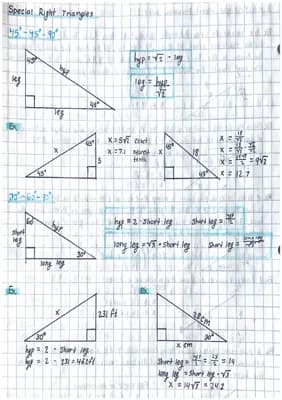 Special Right Triangles
45°-45°-90°
45°
hyp
leg
45°
leg
hyp = √2 · leg
leg = hyp/√2
Ex.
x
45°
5
45°
x = 5√2 Exact
x = 7.1 Nearest tenth
x
45°
18
45°
x = 18/√2
x = 18/√2 · √2/√2
= 9√2
x = 12.7
30°-60°-90°
60°
hyp
short leg
30°
long leg
hyp = 2 · short leg
short leg = hyp/2
long leg = √3 · short leg
short leg =
Ex.
x
231 ft
30°
hyp = 2 · short leg
hyp = 2 · 231 = 462 ft
Ex.
28cm
30°
x cm
short leg = hyp/2 = 28/2 = 14
long leg = short leg · √3
x = 14√3 = 24.2